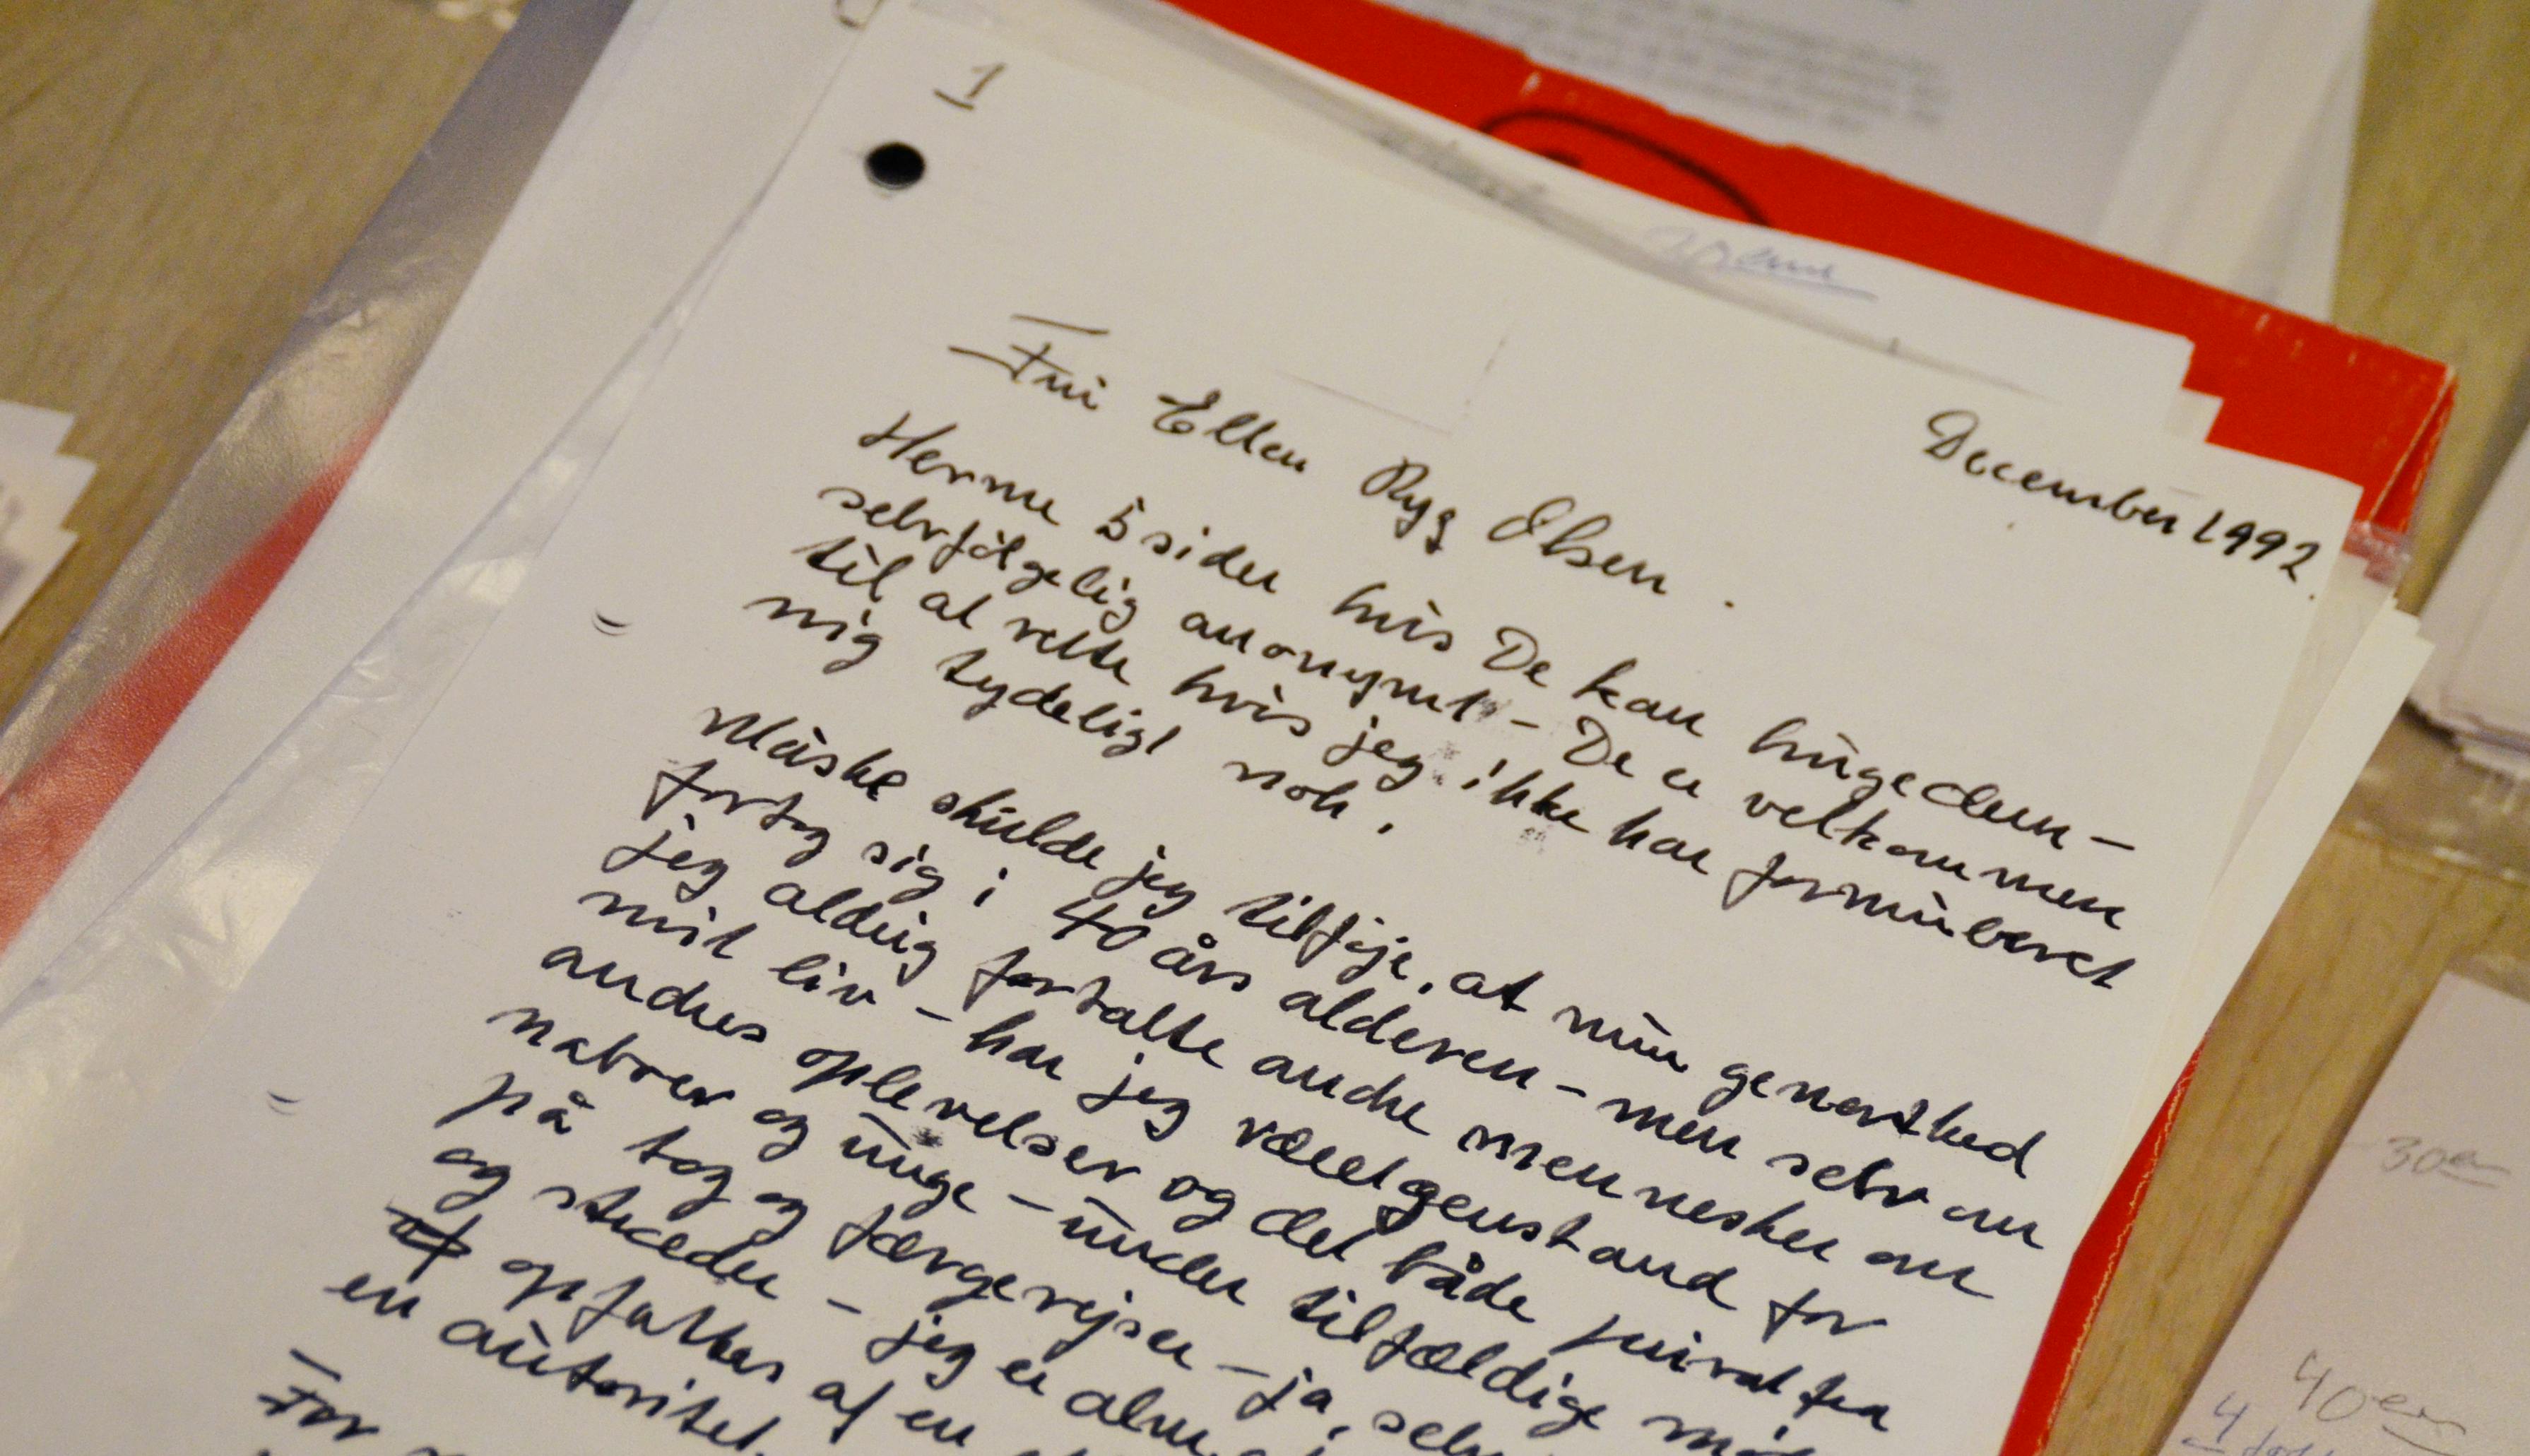 1
December 1992.
Fru Ellen Ryg Olsen.
Herme 5 sider hvis De kan bruge dem –
selvfølgelig anonymt – De er velkommen
til at rette hvis jeg ikke har formuleret
mig tydeligt nok.
Måske skulde jeg tilføje, at min generthed
fortog sig i 40 års alderen – men selv om
jeg aldrig fortalte andre mennesker om
mit liv – har jeg været genstand for
andres oplevelser og det både privat fra
naboer og unge – under tilfældige
på tog og færgerejser – ja, selv
og steder – jeg er
af opfattes af en
en autoritet.
For
30er
40er
4